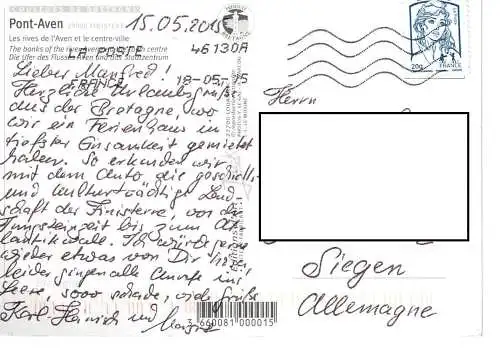 COULEURS DE BRETAGNE
Pont-Aven
15.05.2015
Les rives de l'Aven et le centre-ville
The banks of the river Aven and the town centre
Die Ufer des Flusses Aven und das Stadtzentrum
LA POSTE
46130A
18-05-15
FRANCE
20g
FRANCE
Lieber Manfred!
Herzliche Urlaubsgrüße
aus der Bretagne, wo
wir ein Ferienhaus in
tiefster Einsamkeit gemietet
haben. So erkunden wir
mit dem Auto die geschichts-
und kulturträchtige Land-
schaft der Finisterre, von der
bis zum At-
lantikwalle. Ich würde gerne
wieder etwas von Dir hören,
leider gingen alle Anrufe ins
Leere, sooo schade, viele Grüße
Karl-Heinrich und
Herrn
Siegen
Allemagne
3 660081 000015